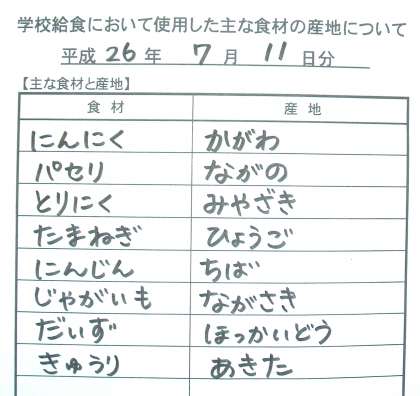 学校給食において使用した主な食材の産地について
平成 26 年 7 月 11 日分
【主な食材と産地】
食材 産地
にんにく かがわ
パセリ ながの
とりにく みやざき
たまねぎ ひょうご
にんじん ちば
じゃがいも ながさき
だいず ほっかいどう
きゅうり あきた